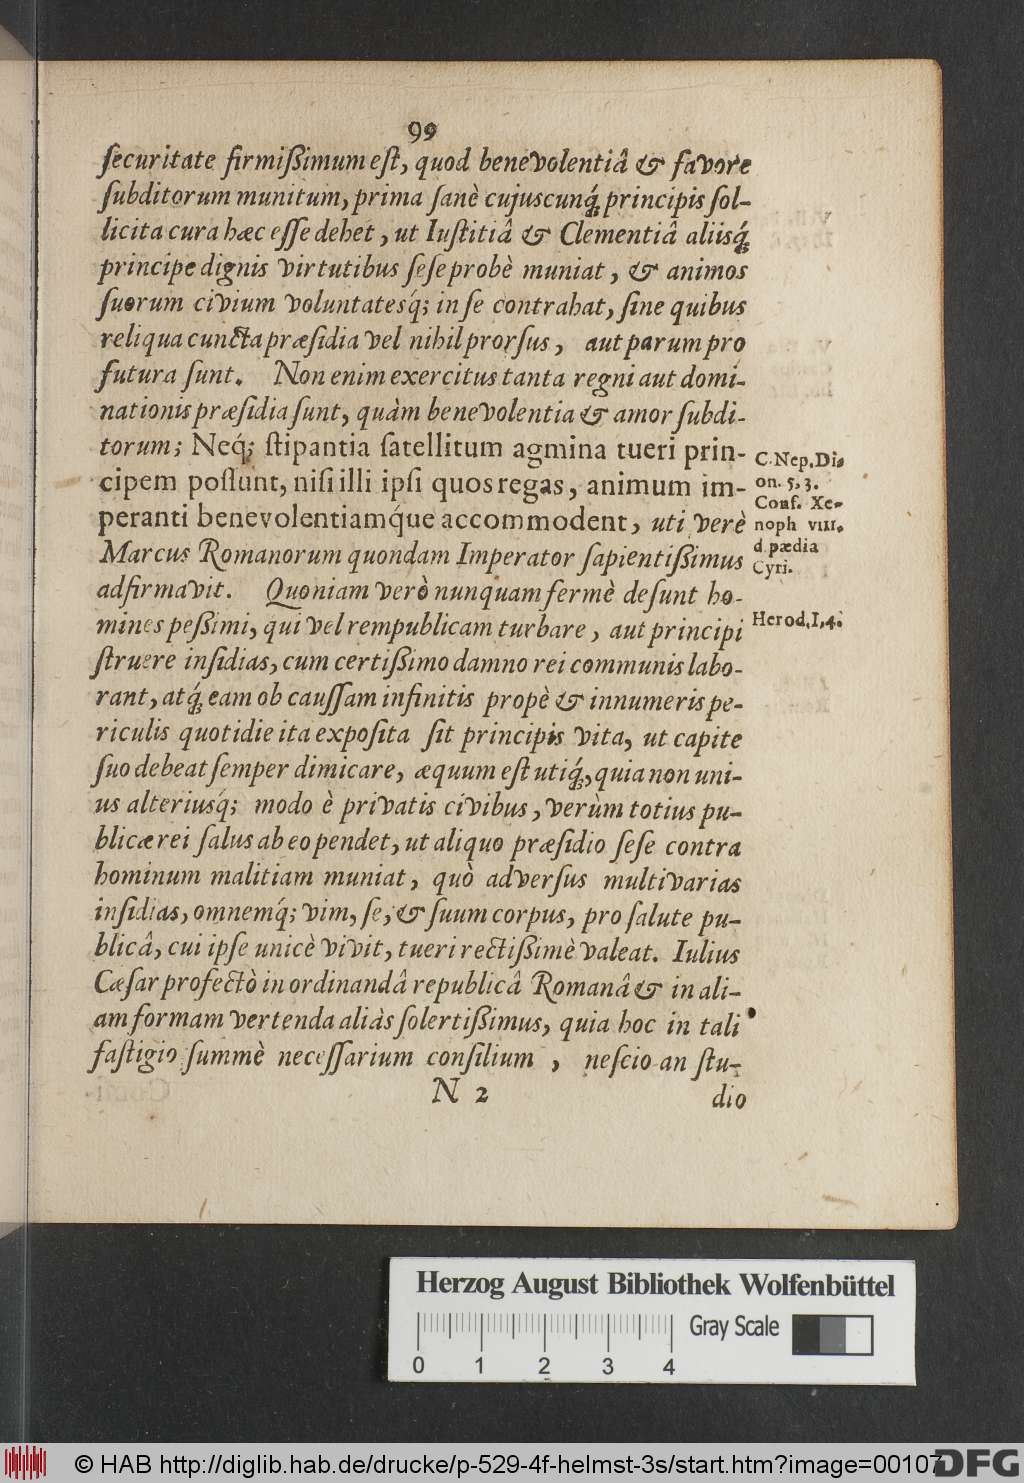 99
ſecuritate firmiſsimum eſt, quod benevolentiâ & favore
ſubditorum munitum, prima ſanè cujuscunq́; principis ſol-
licita cura hæc eſſe dehet, ut Iuſtitiâ & Clementiâ aliisq́;
principe dignis virtutibus ſeſe probè muniat, & animos
ſuorum civium voluntatesq́; in ſe contrahat, ſine quibus
reliqua cuncta præſidia vel nihil prorſus, aut parum pro
futura ſunt. Non enim exercitus tanta regni aut domi-
nationis præſidia ſunt, quàm benevolentia & amor ſubdi-
torum; Neq́; ſtipantia ſatellitum agmina tueri prin-
cipem poſſunt, niſi illi ipſi quos regas, animum im-
peranti benevolentiamq́ue accommodent, uti verè
Marcus Romanorum quondam Imperator ſapientiſsimus
adfirmavit. Quoniam verò nunquam fermè deſunt ho-
mines peſsimi, qui vel rempublicam turbare, aut principi
ſtruere inſidias, cum certiſsimo damno rei communis labo-
rant, atq́; eam ob cauſſam infinitis propè & innumeris pe-
riculis quotidie ita expoſita ſit principis vita, ut capite
ſuo debeat ſemper dimicare, æquum eſt utiq́;, quia non uni-
us alteriusq́; modo è privatis civibus, verùm totius pu-
blicæ rei ſalus ab eo pendet, ut aliquo præſidio ſeſe contra
hominum malitiam muniat, quò adverſus multivarias
inſidias, omnemq́; vim, ſe, & ſuum corpus, pro ſalute pu-
blicâ, cui ipſe unicè vivit, tueri rectiſsimè valeat. Iulius
Cæſar profectò in ordinandâ republicâ Romanâ & in ali-
am formam vertenda aliàs ſolertiſsimus, quia hoc in tali
faſtigio ſummè neceſſarium conſilium, neſcio an ſtu-
N 2
dio
C. Nep. Di-
on. 5, 3.
Conf. Xe-
noph VIII.
d pædia
Cyri.
Herod. I, 4.
Herzog August Bibliothek Wolfenbüttel
Gray Scale
0 1 2 3 4
© HAB http://diglib.hab.de/drucke/p-529-4f-helmst-3s/start.htm?image=00107
DFG